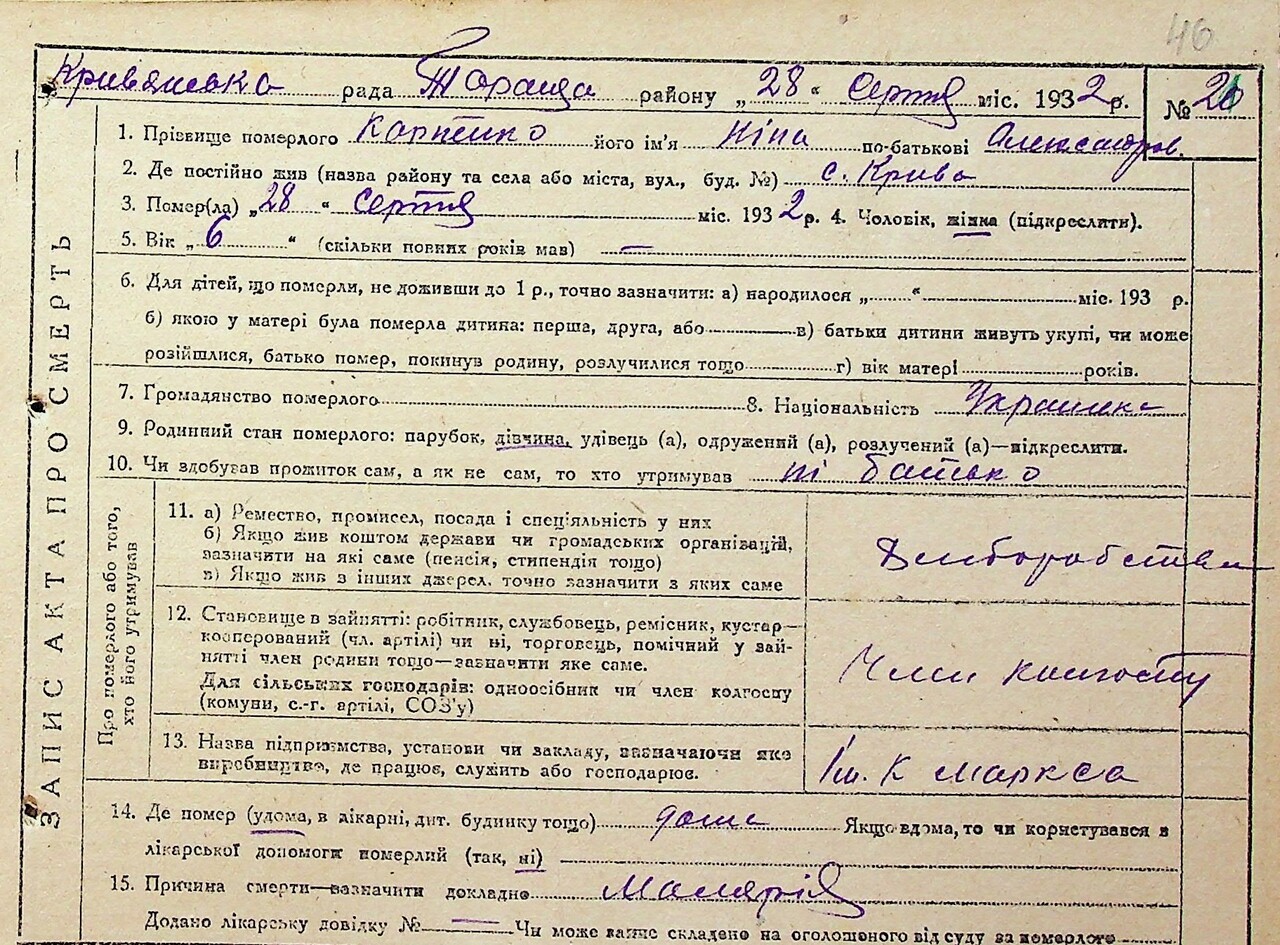 46
Кривянська рада Тараща району „28“ Серпня міс. 1932 р. № 26
ЗАПИС АКТА ПРО СМЕРТЬ
1. Прізвище померлого Карпенко його ім'я Ніна по-батькові Александров.
2. Де постійно жив (назва району та села або міста, вул., буд. №) с. Крива
3. Помер(ла) „28“ Серпня міс. 1932 р. 4. Чоловік, жінка (підкреслити).
5. Вік „6“ (скільки повних років мав) —
6. Для дітей, що померли, не доживши до 1 р., точно зазначити: а) народилося „ “ міс. 193 р.
б) якою у матері була померла дитина: перша, друга, або в) батьки дитини живуть укупі, чи може
розійшлися, батько помер, покинув родину, розлучилися тощо г) вік матері років.
7. Громадянство померлого 8. Національність Украинка
9. Родинний стан померлого: парубок, дівчина, удівець (а), одружений (а), розлучений (а)—підкреслити.
10. Чи здобував прожиток сам, а як не сам, то хто утримував ні батько
Про померлого або того,
хто його утримував
11. а) Ремество, промисел, посада і спеціяльність у них
б) Якщо жив коштом держави чи громадських організацій,
зазначити на які саме (пенсія, стипендія тощо)
в) Якщо жив з інших джерел, точно зазначити з яких саме
Хліборобство
12. Становище в зайнятті: робітник, службовець, ремісник, кустар—
кооперований (чл. артілі) чи ні, торговець, помічний у зай-
нятті член родини тощо—зазначити яке саме.
Для сільських господарів: одноосібник чи член колгоспу
(комуни, с.-г. артілі, СОЗ'у)
Член колгоспу
13. Назва підприємства, установи чи закладу, зазначаючи яке
виробництво, де працює, служить або господарює.
Ім. К Маркса
14. Де помер (удома, в лікарні, дит. будинку тощо) дома Якщо вдома, то чи користувався з
лікарської допомоги померлий (так, ні)
15. Причина смерти—зазначити докладно Малярія
Додано лікарську довідку № — Чи може запис складено на оголошеного від суду за померлого